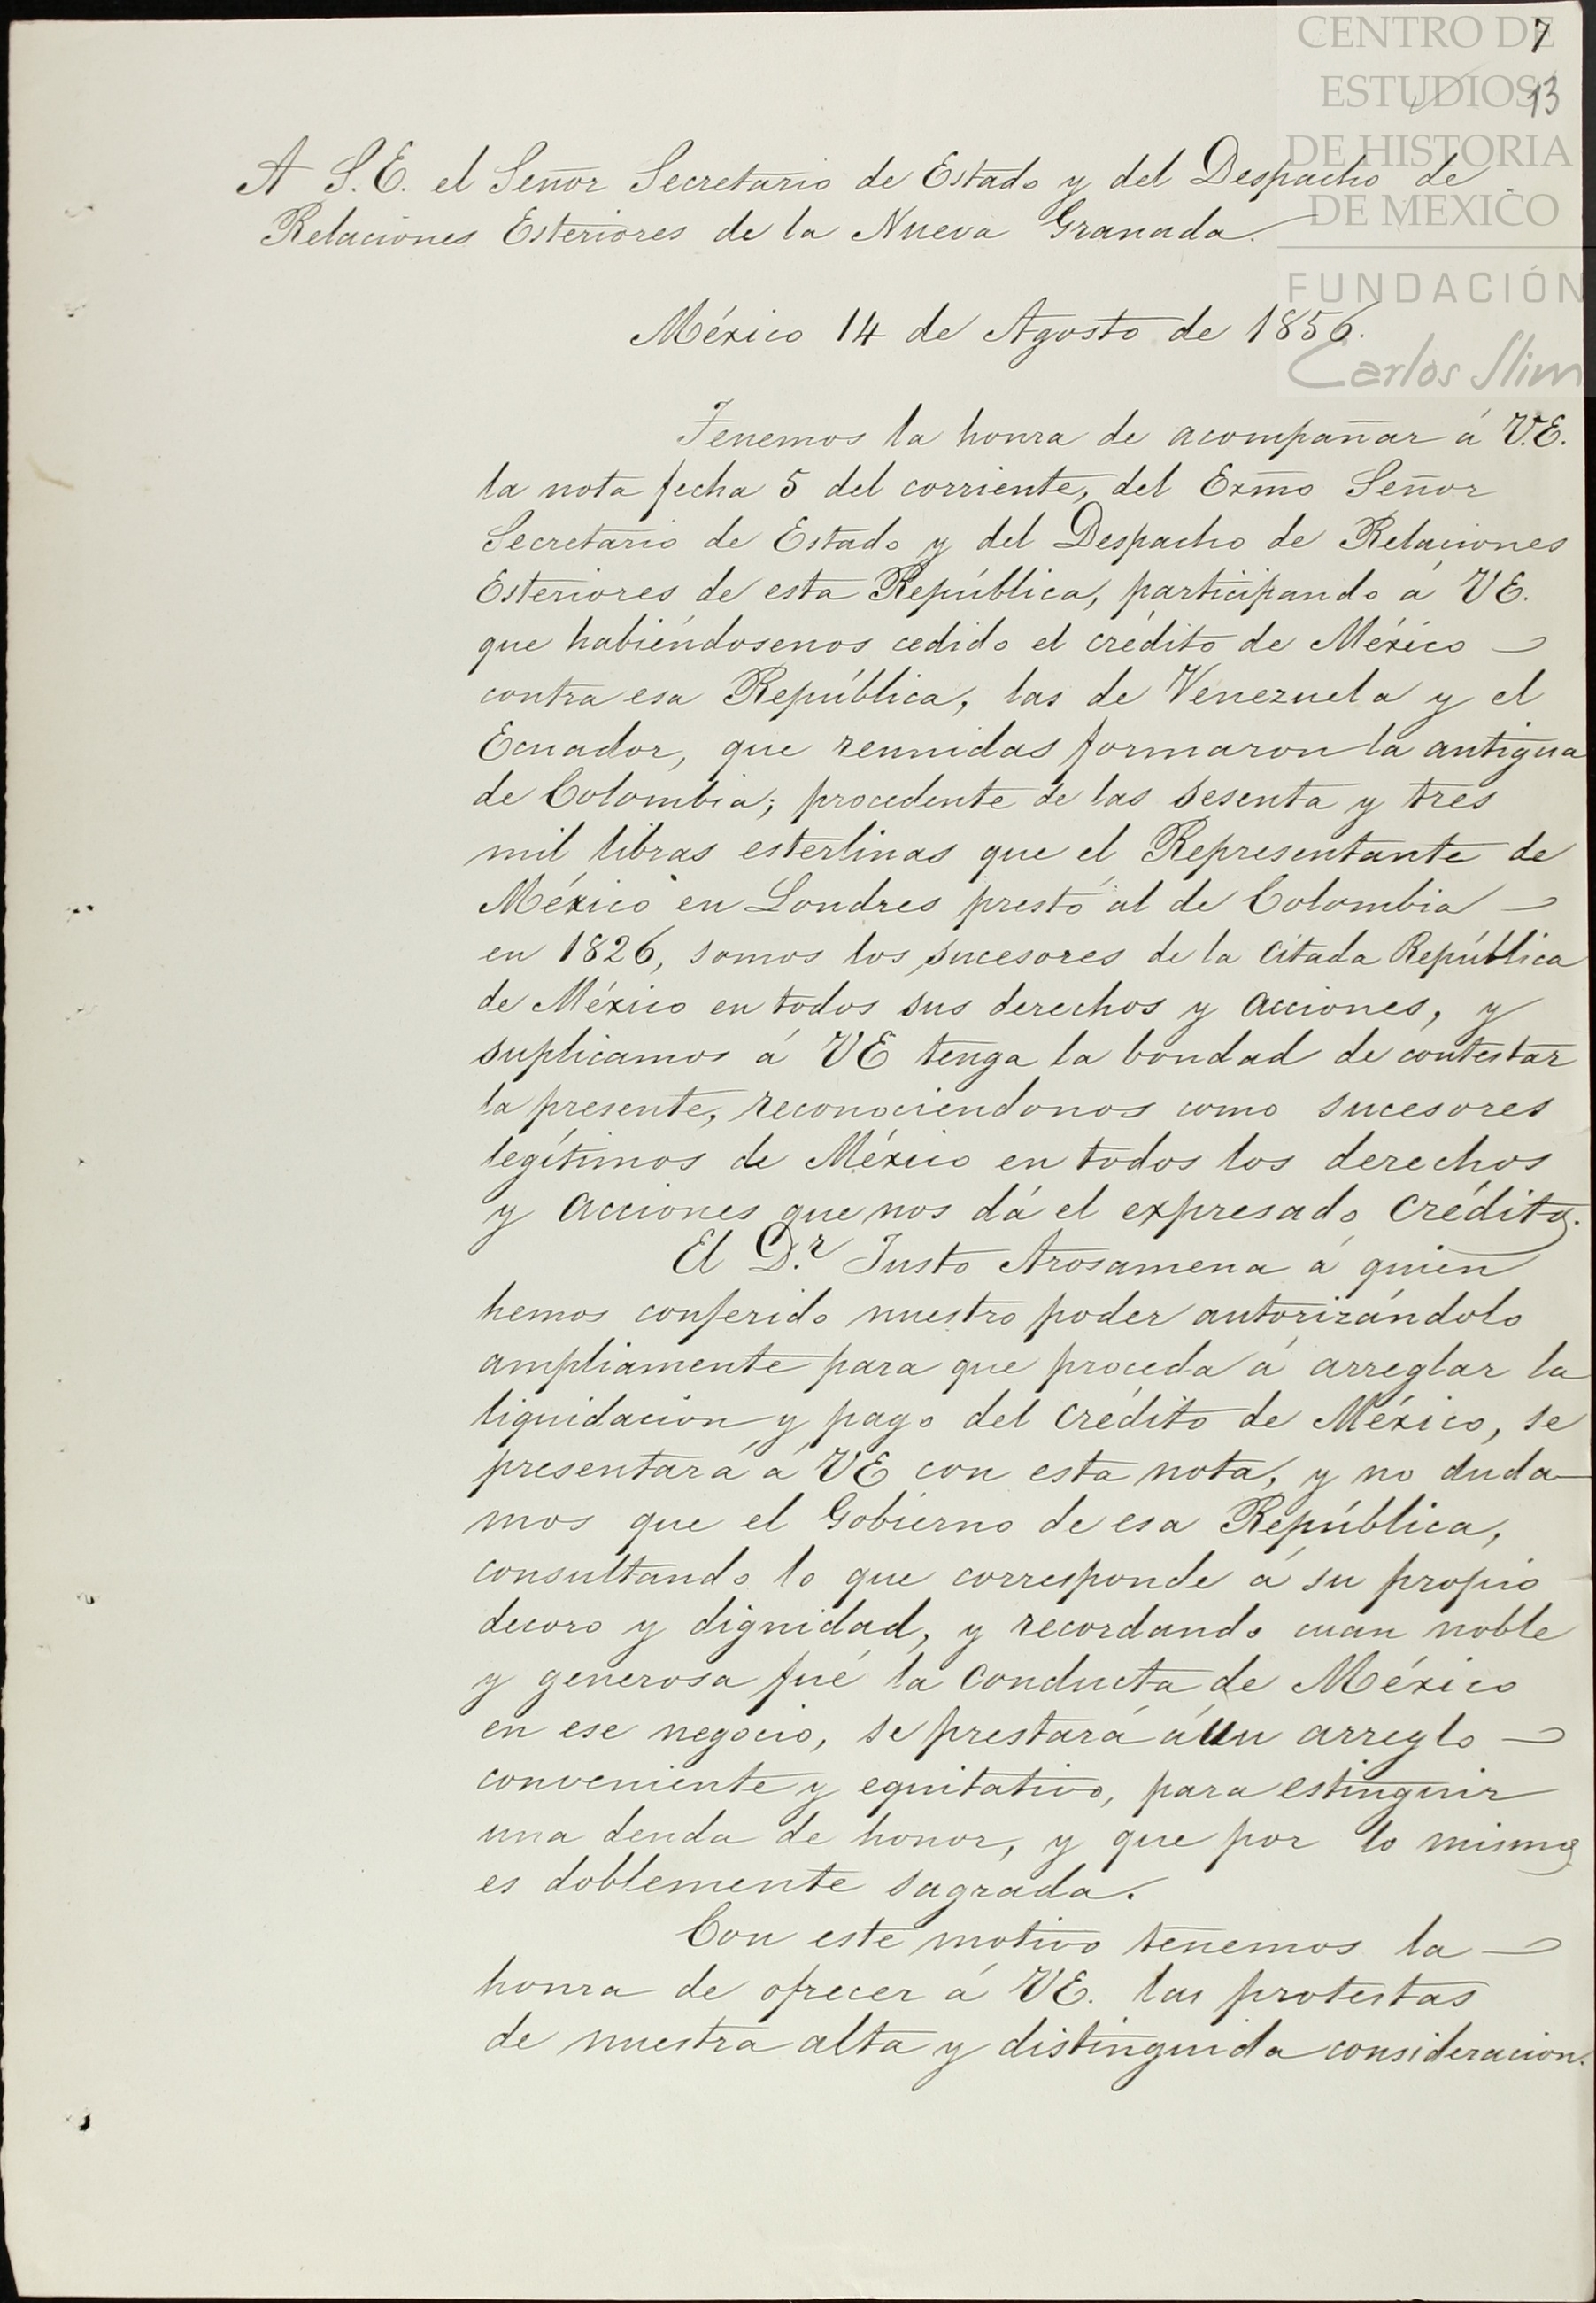 CENTRO DE
ESTUDIOS
DE HISTORIA
DE MEXICO
FUNDACIÓN
Carlos Slim
7
13
A S.E. el Señor Secretario de Estado y del Despacho de
Relaciones Esteriores de la Nueva Granada.
México 14 de Agosto de 1856.
Tenemos la honra de acompañar á V.E.
la nota fecha 5 del corriente, del Exmo Señor
Secretario de Estado y del Despacho de Relaciones
Esteriores de esta República, participando á VE.
que habiéndosenos cedido el crédito de México
contra esa República, las de Venezuela y el
Ecuador, que reunidas formaron la antigua
de Colombia; procedente de las sesenta y tres
mil libras esterlinas que el Representante de
México en Londres prestó al de Colombia
en 1826, somos los sucesores de la citada República
de México en todos sus derechos y acciones, y
suplicamos á VE tenga la bondad de contestar
la presente, reconociendonos como sucesores
legítimos de México en todos los derechos
y acciones que nos dá el expresado crédito.
El D.r Justo Arosamena á quien
hemos conferido nuestro poder autorizándolo
ampliamente para que proceda á arreglar la
liquidacion y pago del crédito de México, se
presentará á VE con esta nota, y no duda-
mos que el Gobierno de esa República,
consultando lo que corresponde á su propio
decoro y dignidad, y recordando cuan noble
y generosa fué la conducta de México
en ese negocio, se prestará á un arreglo
conveniente y equitativo, para estinguir
una deuda de honor, y que por lo mismo
es doblemente sagrada.
Con este motivo tenemos la
honra de ofrecer á VE. las protestas
de nuestra alta y distinguida consideracion.